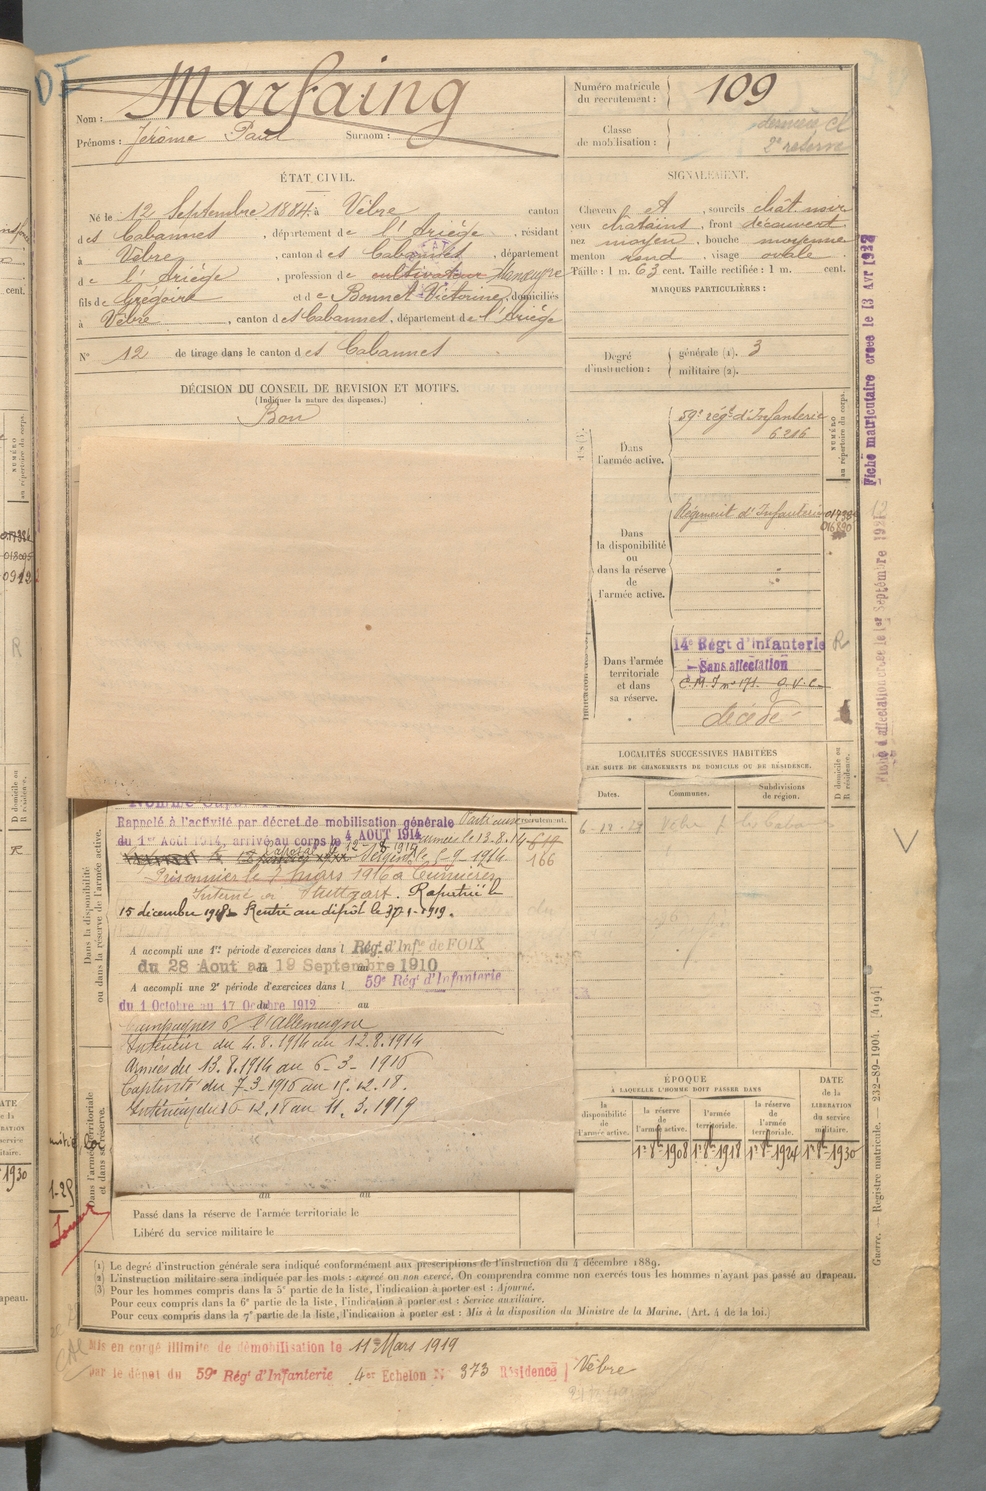 Marfaing
Nom :
Prénoms : Jérôme Paul Surnom :
Numéro matricule du recrutement : 109
Classe de mobilisation : dernière Cl
2e réserve
ÉTAT CIVIL.
Né le 12 Septembre 1884, à Vèbre canton
des Cabannes, département de l'Ariège, résidant
à Vèbre, canton des Cabannes, département
de l'Ariège, profession de cultivateur
fils de Grégoire et de Bonnet Victorine, domiciliés
à Vèbre, canton des Cabannes, département de l'Ariège
N° 12 de tirage dans le canton des Cabannes
DÉCISION DU CONSEIL DE REVISION ET MOTIFS.
(Indiquer la nature des dispenses.)
Bon
SIGNALEMENT.
Cheveux et, sourcils chât noir
yeux chatains, front découvert
nez moyen, bouche moyenne
menton rond, visage ovale
Taille : 1 m. 63 cent. Taille rectifiée : 1 m. cent.
MARQUES PARTICULIÈRES :
Degré d'instruction : générale (1). 3
militaire (2).
NUMÉRO au répertoire du corps.
Dans l'armée active.
59e régt d'Infanterie
6216
Dans la disponibilité ou dans la réserve de l'armée active.
Régiment d'Infanterie
Dans l'armée territoriale et dans sa réserve.
14e Régt d'Infanterie R
Sans affectation
G.V.C.
décédé
LOCALITÉS SUCCESSIVES HABITÉES
PAR SUITE DE CHANGEMENTS DE DOMICILE OU DE RÉSIDENCE.
Dates. Communes. Subdivisions de région.
D domicile ou R résidence.
Vèbre
Fiche matriculaire créée le 13 Avr 1932
Fiche d'affectation créée le 1er Septembre
Dans la disponibilité ou dans la réserve de l'armée active.
Rappelé à l'activité par décret de mobilisation générale
du 1er Août 1914, arrivé au corps le 4 AOUT 1914
recrutement.
166
Prisonnier le 7 mars 1916 à Cumières
Interné à Stuttgart. Rapatrié le
15 décembre 1918. Rentré au dépôt le
A accompli une 1re période d'exercices dans l Rég. d'Infie de FOIX
du 28 Aout au 19 Septembre 1910
A accompli une 2e période d'exercices dans l 59e Régt d'Infanterie
du 1 Octobre au 17 Octobre 1912 au
Campagnes l'Allemagne
Intérieur du 4.8.1914 au 12.8.1914
Armées du 13.8.1914 au 6-3-1916
Captivité du 7-3-1916 au 15.12.18.
Intérieur du 16-12.18 au 11.3.1919
Dans l'armée territoriale et dans sa réserve.
Passé dans la réserve de l'armée territoriale le
Libéré du service militaire le
ÉPOQUE
À LAQUELLE L'HOMME DOIT PASSER DANS
la disponibilité de l'armée active.
la réserve de l'armée active.
l'armée territoriale.
la réserve de l'armée territoriale.
DATE de la LIBÉRATION du service militaire.
1er 8bre 1908 1er 8bre 1918 1er 8bre 1924 1er 8bre 1930
Guerre. — Registre matricule. — 232-89-1904. [4194]
(1) Le degré d'instruction générale sera indiqué conformément aux prescriptions de l'instruction du 4 décembre 1889.
(2) L'instruction militaire sera indiquée par les mots : exercé ou non exercé. On comprendra comme non exercés tous les hommes n'ayant pas passé au drapeau.
(3) Pour les hommes compris dans la 5e partie de la liste, l'indication à porter est : Ajourné.
Pour ceux compris dans la 6e partie de la liste, l'indication à porter est : Service auxiliaire.
Pour ceux compris dans la 7e partie de la liste, l'indication à porter est : Mis à la disposition du Ministre de la Marine. (Art. 4 de la loi.)
Mis en congé illimité de démobilisation le 11 Mars 1919
par le dépôt du 59e Régt d'Infanterie 4e Echelon N° 373 Résidence Vèbre